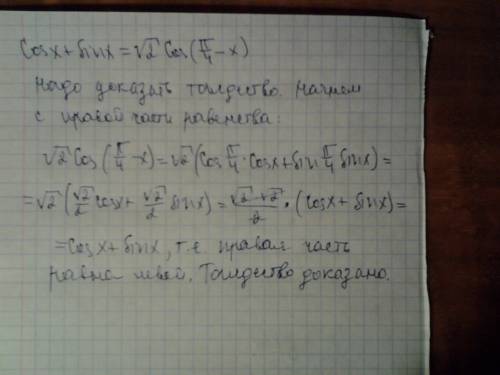 Cosx + sinx = √2 Cos(π/4 - x)
Надо доказать тождество. Начнем
с правой части равенства:
√2 Cos(π/4 - x) = √2 (Cos π/4 · Cosx + sin π/4 sinx) =
= √2 (√2/2 cosx + √2/2 sinx) = √2·√2/2 · (Cosx + sinx) =
= Cosx + sinx, т.е. правая часть
равна левой. Тождество доказано.